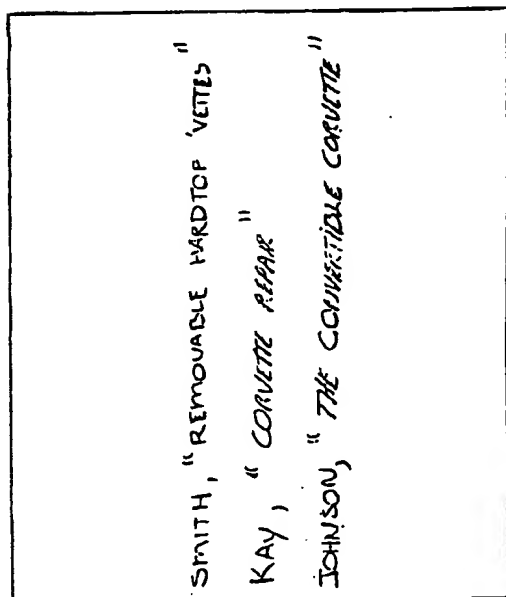 SMITH, "REMOVABLE HARDTOP 'VETTES"
KAY, "CORVETTE REPAIR"
JOHNSON, "THE CONVERTIBLE CORVETTE"